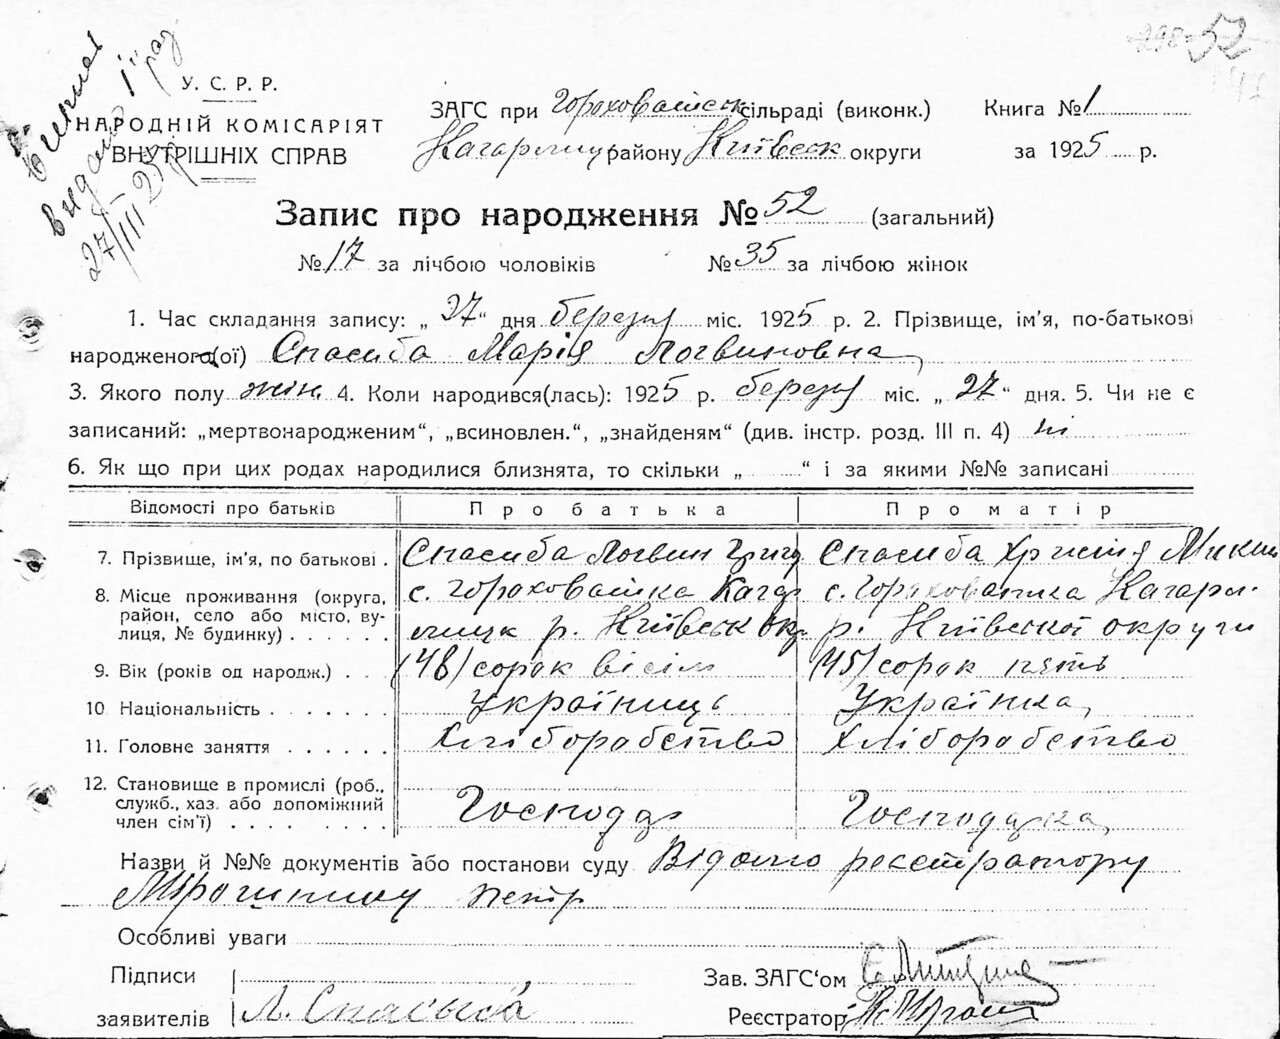 298 52
Витяг
видано 1 рад
27/III 25 р
У. С. Р. Р.
НАРОДНІЙ КОМІСАРІЯТ
ВНУТРІШНІХ СПРАВ
ЗАГС при Гороховатськ сільраді (виконк.)
Кагарлицьк району Київськ округи
Книга № 1
за 1925 р.
Запис про народження № 52 (загальний)
№ 17 за лічбою чоловіків № 35 за лічбою жінок
1. Час складання запису: „ 27 “ дня березня міс. 1925 р. 2. Прізвище, ім’я, по-батькові
народженого(ої) Спасиба Марія Логвиновна
3. Якого полу жін. 4. Коли народився(лась): 1925 р. березня міс. „ 27 “ дня. 5. Чи не є
записаний: „мертвонародженим“, „всиновлен.“, „знайденям“ (див. інстр. розд. III п. 4) ні
6. Як що при цих родах народилися близнята, то скільки „ “ і за якими №№ записані
Відомості про батьків Про батька Про матір
7. Прізвище, ім’я, по батькові . Спасиба Логвин Григ Спасиба Христія Микит
8. Місце проживання (округа, район, село або місто, вулиця, № будинку) с. Гороховатка Кагарлицьк р. Київськ окр с. Гороховатка Кагарл. р. Київської округи
9. Вік (років од народж.) (48) сорок вісім (45) сорок пять
10 Національність Українець Українка
11. Головне заняття Хліборобство Хліборобство
12. Становище в промислі (роб., служб., хаз. або допоміжний член сім’ї) Господар Господарка
Назви й №№ документів або постанови суду Відомо реєстратору
Мірошнику Петр
Особливі уваги
Підписи
заявителів Л. Спасыба
Зав. ЗАГС‘ом
Реєстратор